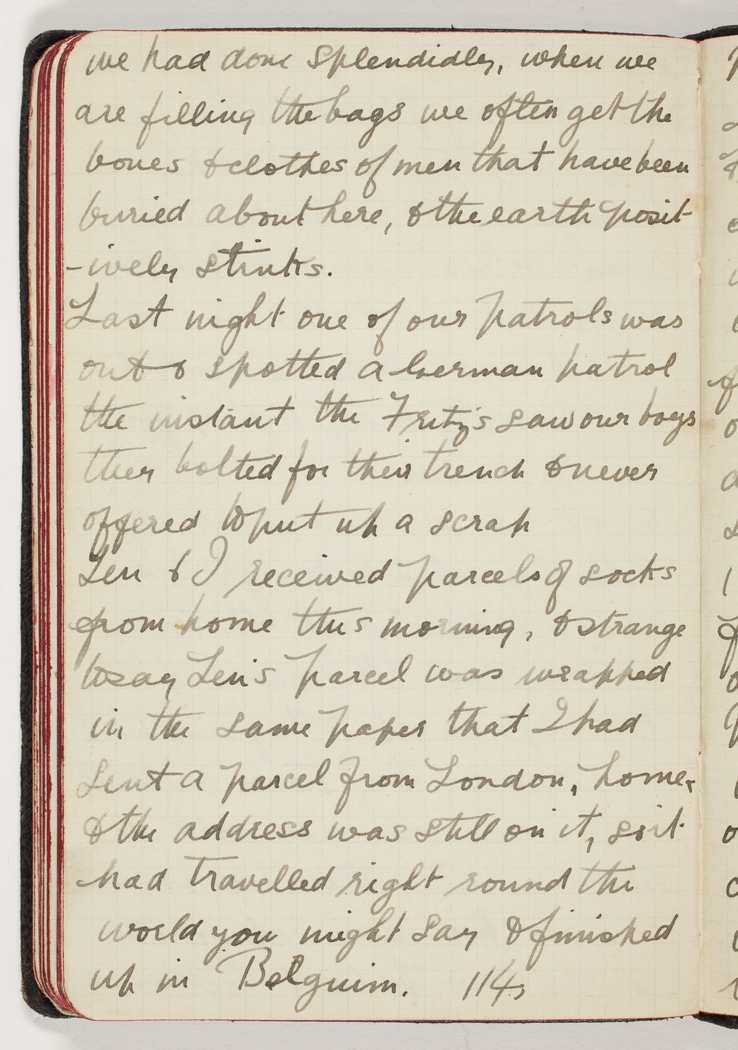 we had done splendidly, when we
are filling the bags we often get the
bones & clothes of men that have been
buried about here, & the earth posit-
-ively stinks.
Last night one of our patrols was
out & spotted a German patrol
the instant the Fritz's saw our boys
they bolted for their trench & never
offered to put up a scrap
Len & I received parcels of socks
from home this morning, & strange
to say Len's parcel was wrapped
in the same paper that I had
sent a parcel from London, home,
& the address was still on it, so it
had travelled right round the
world you might say & finished
up in Belguim. 114,